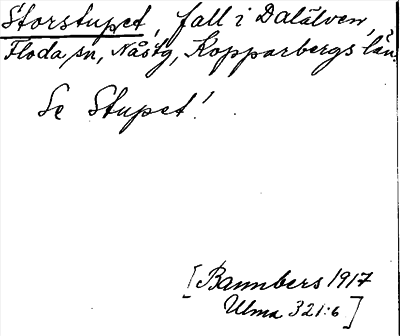 Storstupet, fall i Dalälven,
Floda sn, Nås tg, Kopparbergs län.
Se Stupet!
[Bannbers 1917
Ulma 321:6]